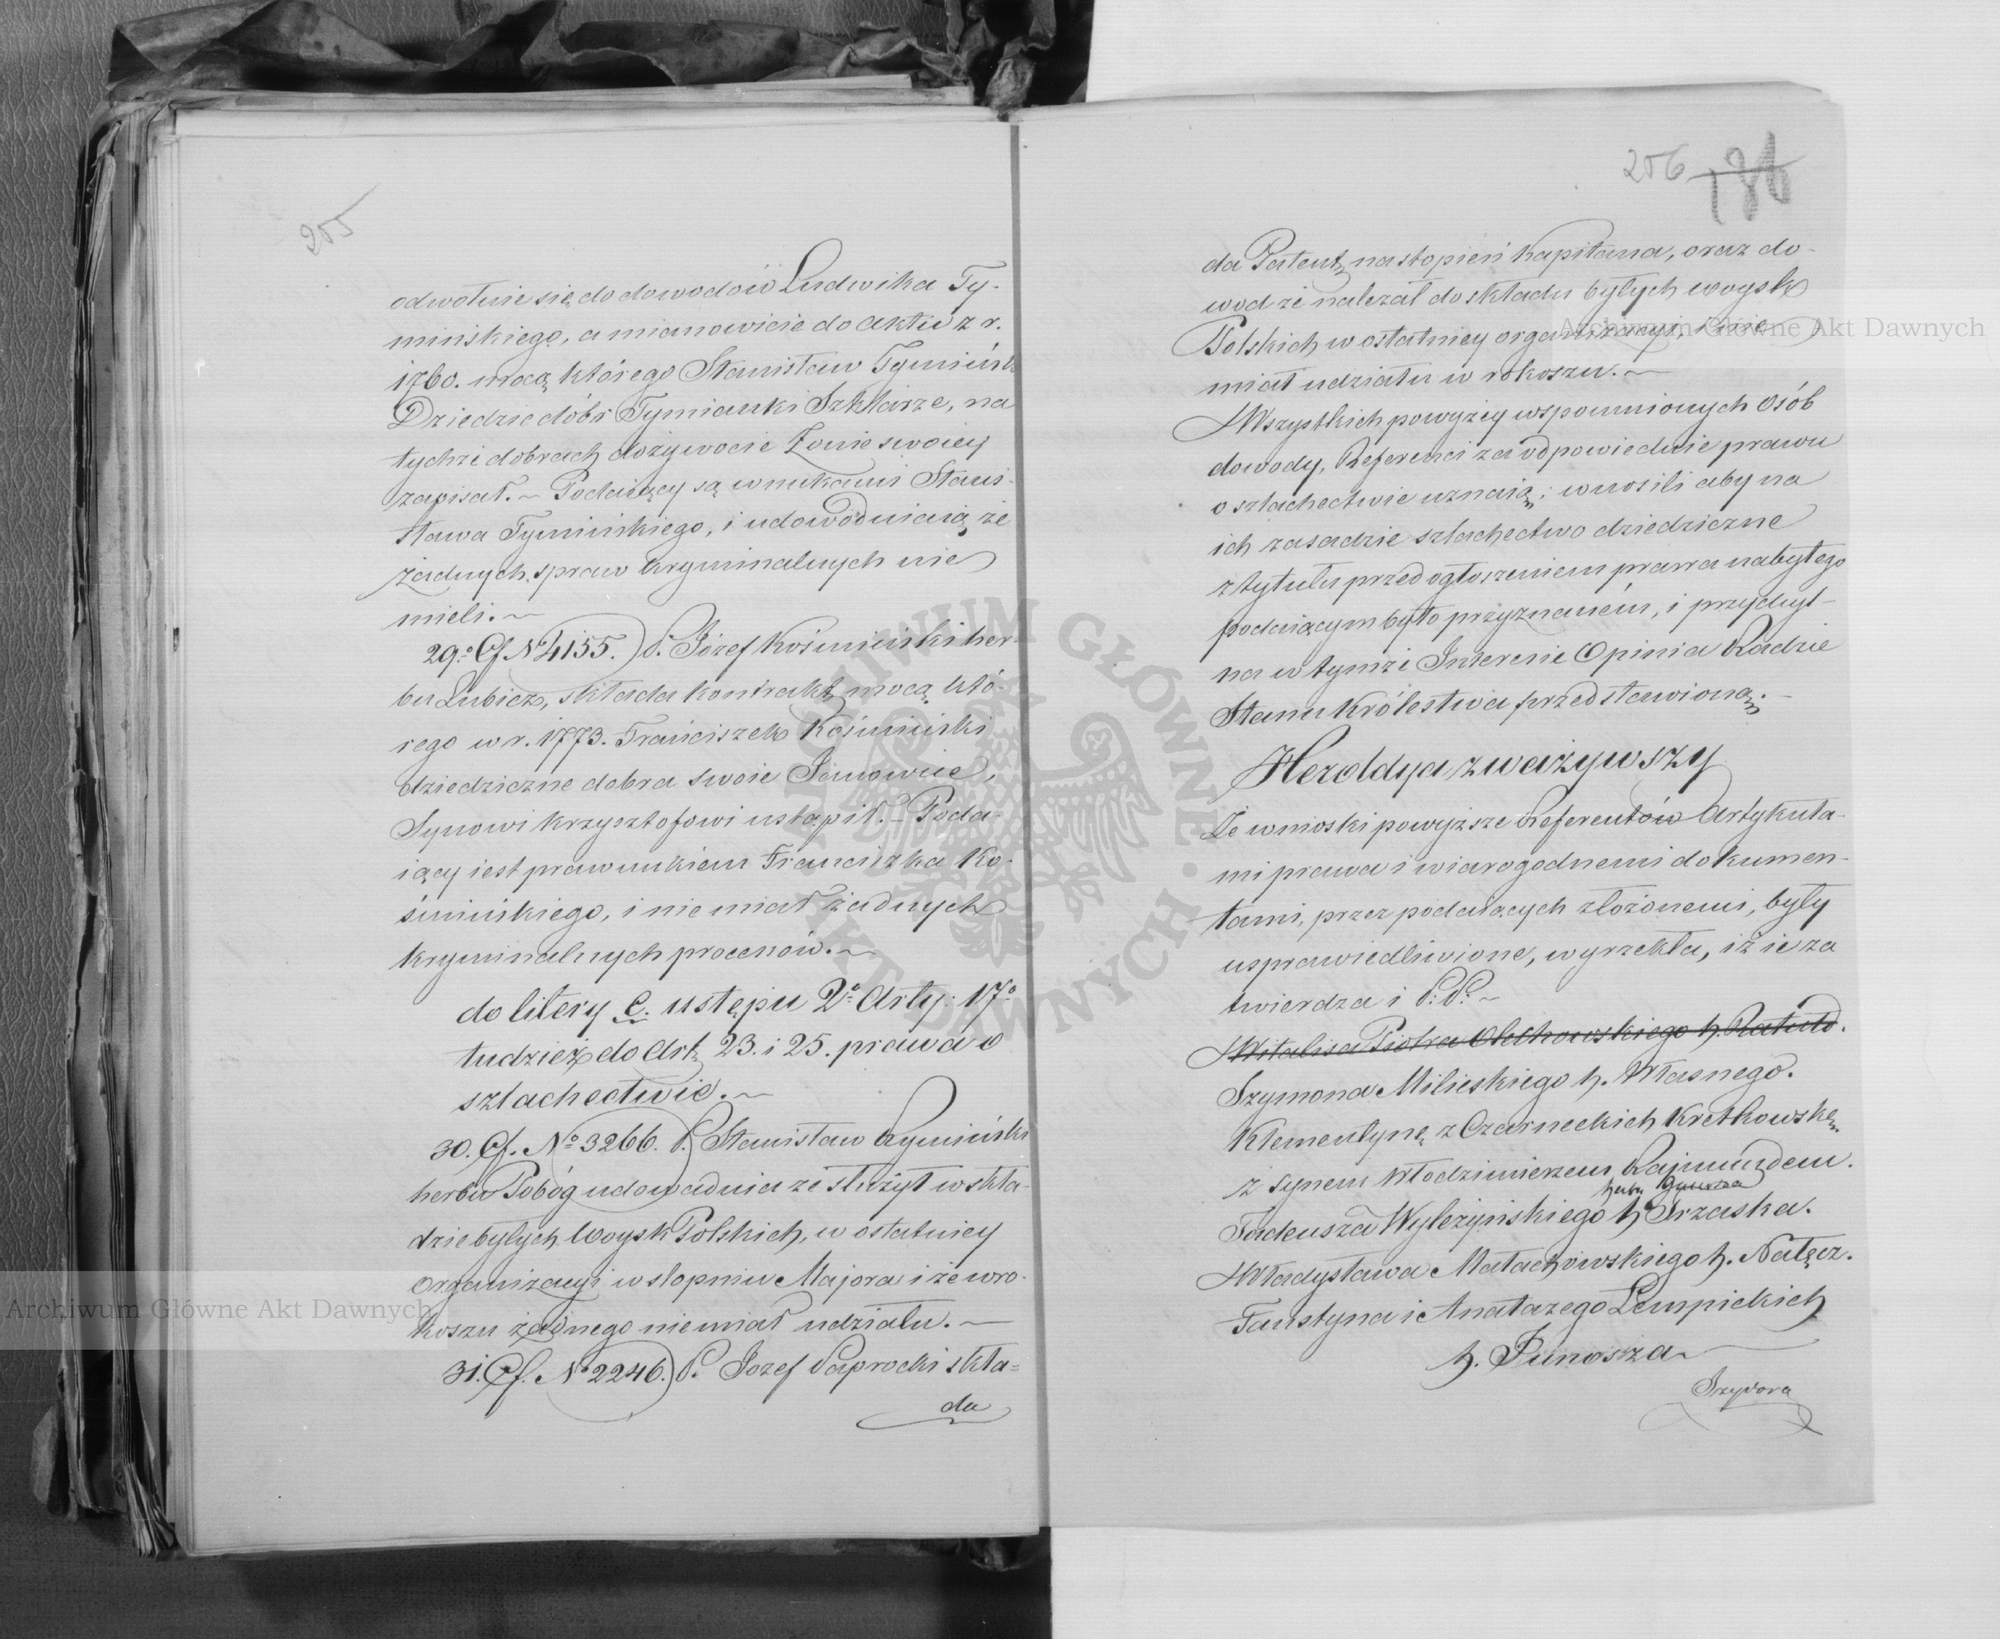 255
odwołuie się do dowodów Ludwika Ty-
mińskiego, a mianowicie do aktu z r.
1760. mocą którego Stanisław Tymiński
Dziedzic dóbr Tymianki Szklarze, na
tychże dobrach dożywocie Żonie swoiey
zapisał. ~ Podaiący są wnukami Stani-
sława Tymińskiego, i udowodniaią że
żadnych spraw kryminalnych nie
mieli. ~
29.° Cf. N° 4155. P. Józef Kośmiński her-
bu Lubicz, składa kontrakt mocą któ-
rego w r. 1773. Franciszek Kośmiński
dziedziczne dobra swoie
Synowi Krzysztofowi ustąpił. ~ Poda-
iący iest prawnukiem Franciszka Ko-
śmińskiego, i nie miał żadnych
kryminalnych procesów. ~
do litery C. ustępu 2° Arty: 17°
tudzież do Art. 23. i 25. prawa o
szlachectwie. ~
30. Cf. N° 3266. P. Stanisław Rymiński
herbu Pobóg udowadnia że służył w skła-
dzie byłych Woysk Polskich, w ostatniey
organizacyi w stopniu Majora i że w ro-
koszu żadnego nie miał udziału. ~
31. Cf. N° 2246. P. Jozef Paprocki skła=
da
256 186
da Patent na stopień Kapitana, oraz do-
wod że należał do składu byłych woysk
Polskich w ostatniey organizacyi, i nie
miał udziału w rokoszu. ~
Wszystkich powyżey wspomnionych osób
dowody, Referenci za odpowiednie prawu
o szlachectwie uznaią; wnosili aby na
ich zasadzie szlachectwo dziedziczne
z tytułu przed ogłoszeniem prawa nabytego
podaiącym było przyznaném, i przychyl-
na w tymże Interesie Opinia Radzie
Stanu Królestwa przedstawioną. ~
Heroldya zważywszy
Że wnioski powyższe Referentów Artykuła-
mi prawa i wiarogodnemi dokumen-
tami, przez podaiących złożonemi, były
usprawiedliwione, wyrzekła, iż ie za
twierdza i P. P. ~
Witalisa Piotra Olechowskiego h. Ratułd.
Szymona Milieskiego h. Własnego.
Klementynę z Czarneckich Kretkowską
z synem Włodzimierzem Rajmundem.
herbu
Tadeusza Wyleżyńskiego h. Trzaska.
Władysława Małachowskiego h. Nałęcz.
Faustyna i Anatazego Lempickich
h. Junosza
Izydora
Archiwum Główne Akt Dawnych
Archiwum Główne Akt Dawnych
ARCHIWUM GŁÓWNE AKT DAWNYCH